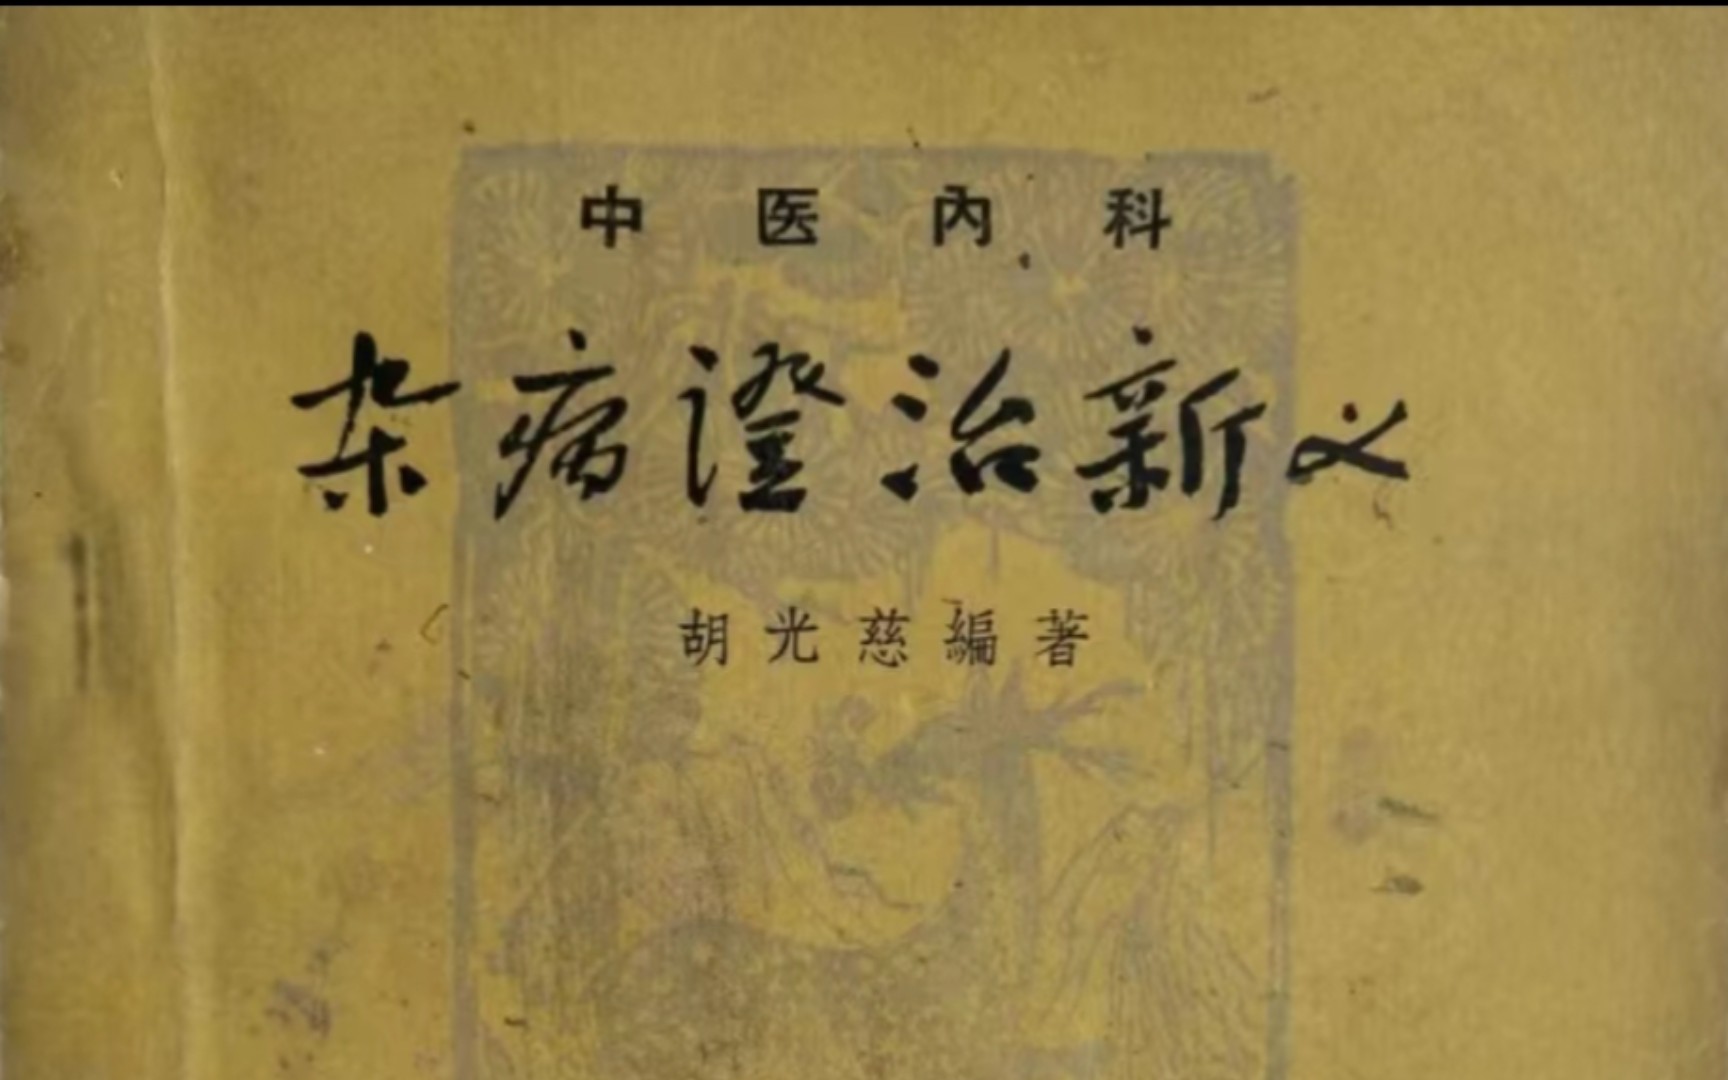 中医內科
杂病證治新义
胡光慈編著